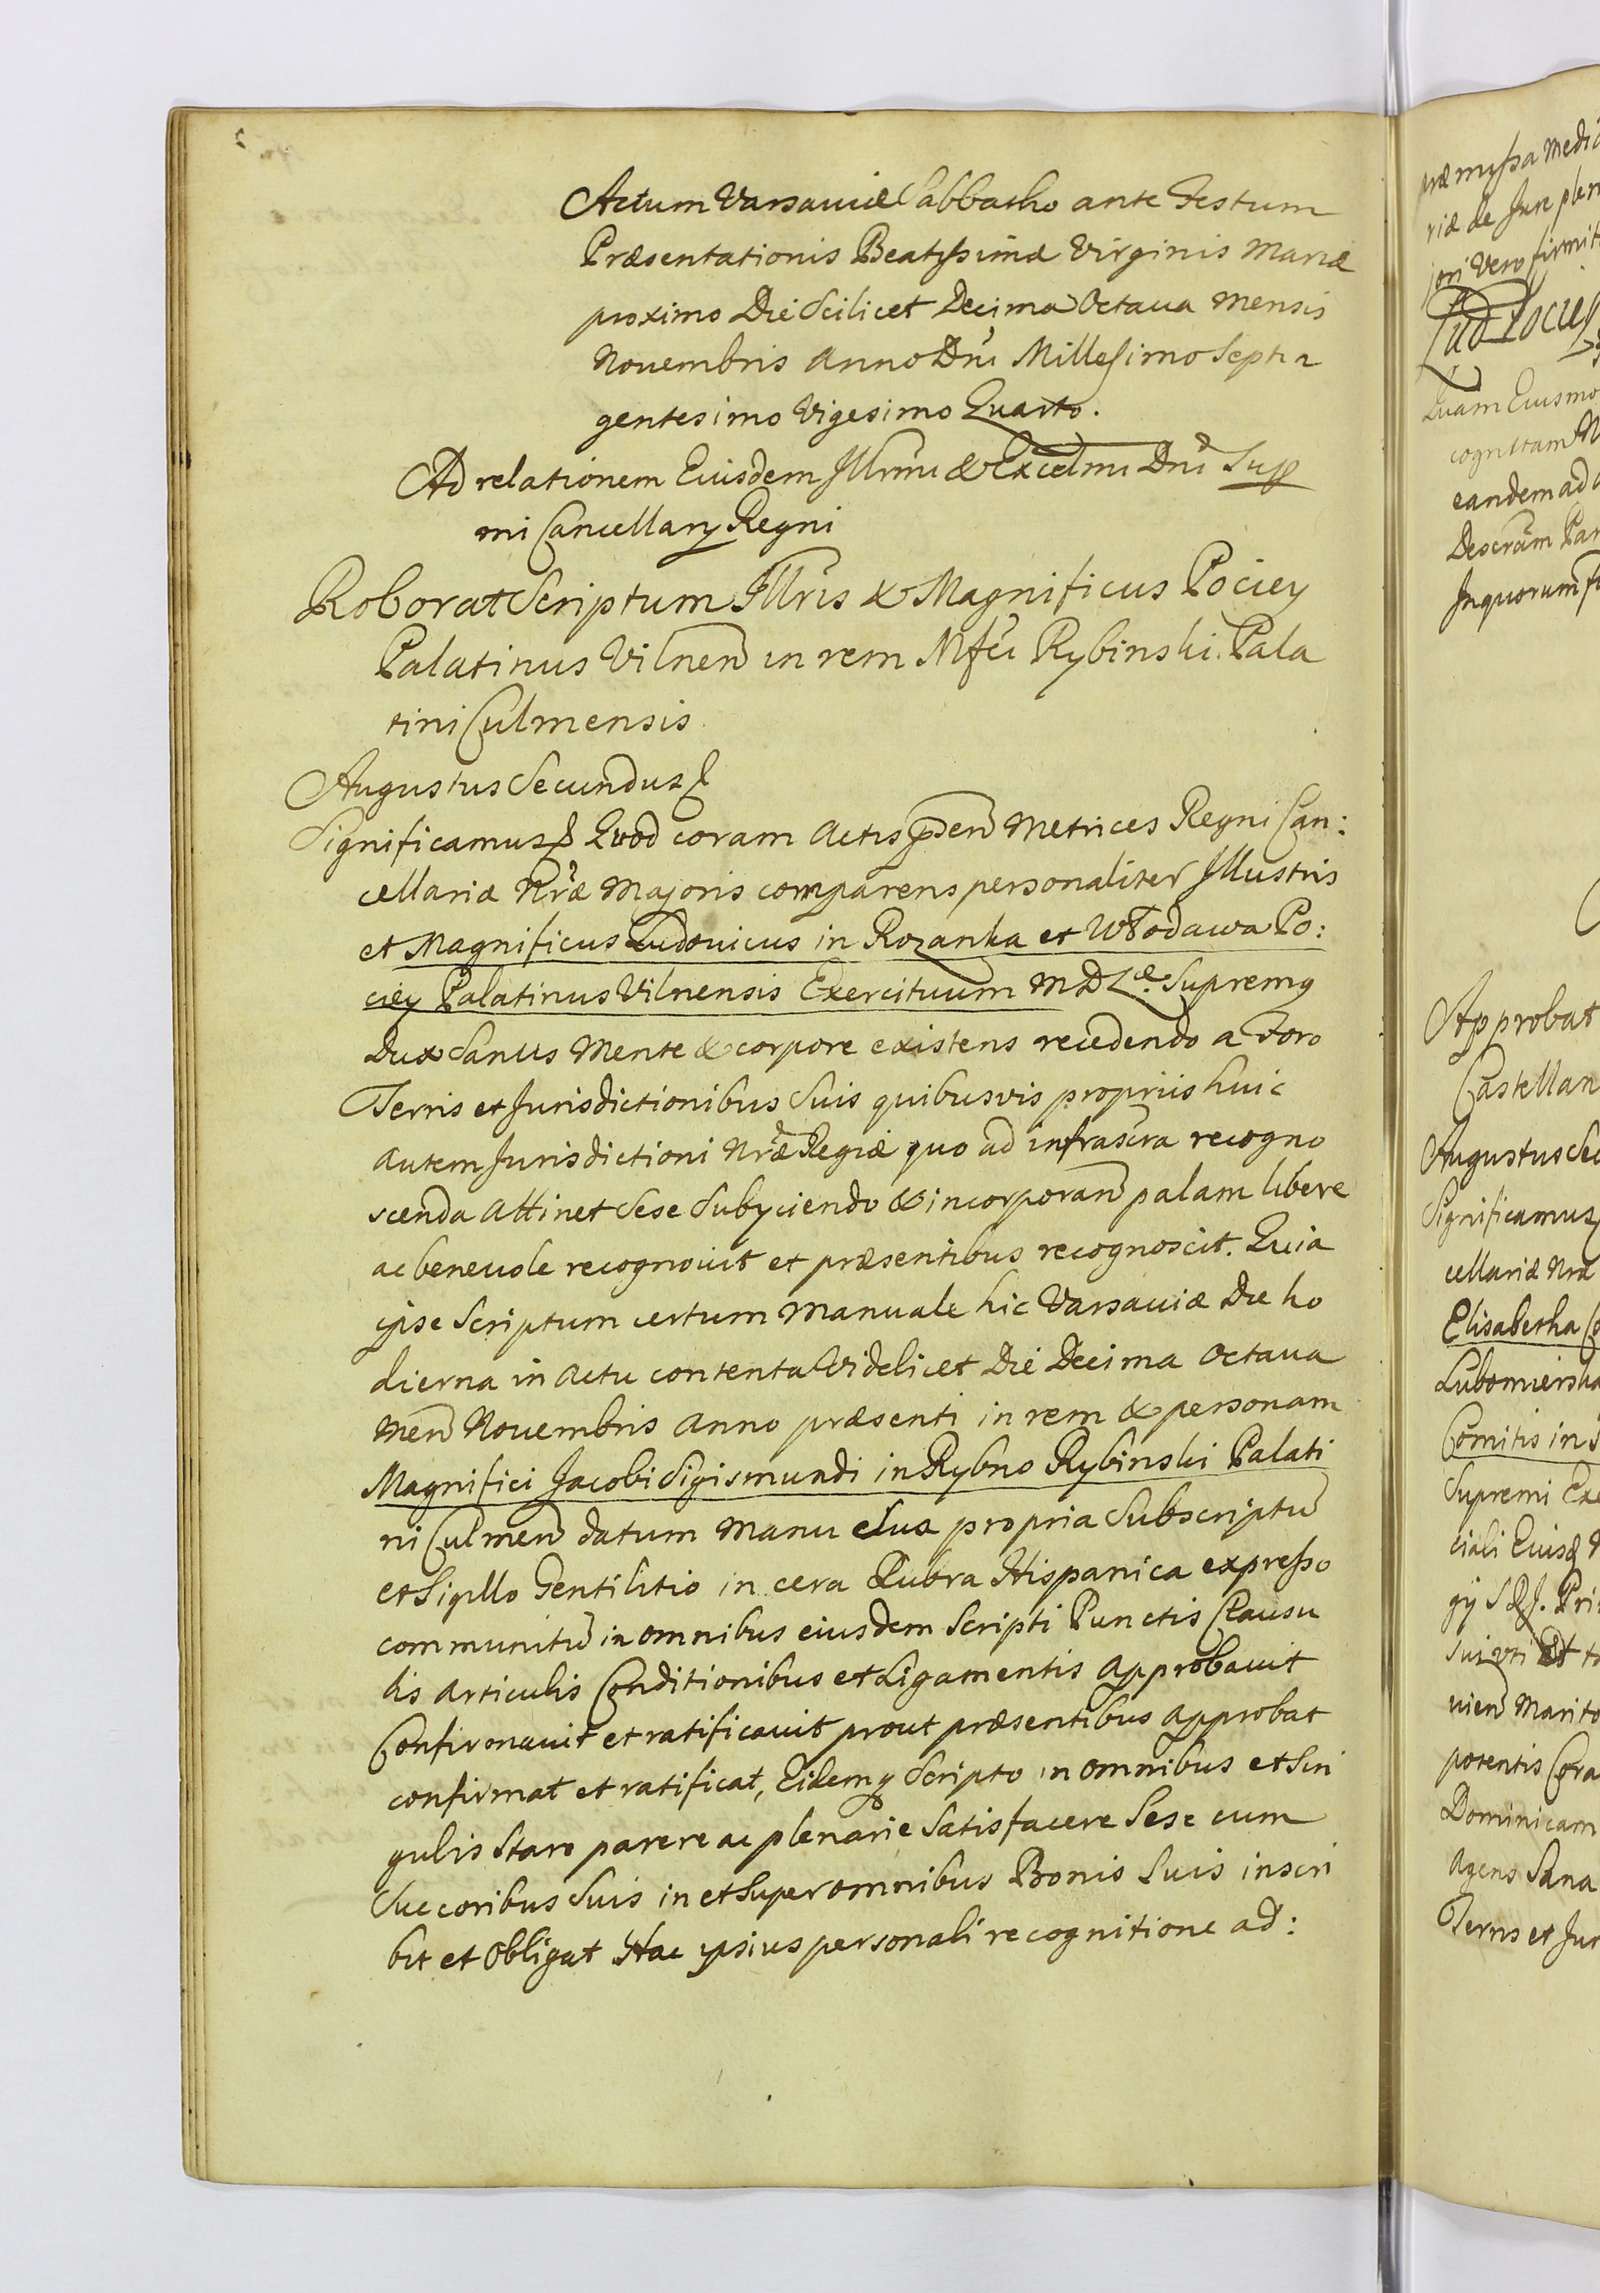 Actum Varsaviæ Sabbatho ante Festum
Præsentationis Beatissimæ Virginis Mariæ
proximo Die Scilicet Decima Octava Mensis
Novembris Anno Dni Millesimo Septin
gentesimo Vigesimo Quarto.
Ad relationem Eiusdem Illrmi & Excelmi Dni Supp
mi Cancellarij Regni
Roborat Scriptum Illris & Magnificus Pociey
Palatinus Vilnen in rem Mfci Rybinski Pala
tini Culmensis
Augustus Secundus
Significamus Quod coram Actis pnen Metrices Regni Can:
cellariæ Nræ Majoris comparens personaliter Illustris
et Magnificus Ludovicus in Rozanka et Włodawa Po:
ciey Palatinus Vilnensis Exercituum M D L. Supremq
Dux Sanus Mente & corpore existens recedendo a Foro
Terris et Jurisdictionibus Suis quibusvis propriis huic
autem Jurisdictioni Nræ Regiæ quo ad infrascra recogno
scenda attinet Sese Subyciendo & incorporan palam libere
ac benevole recognovit et præsentibus recognoscit. Quia
ipse Scriptum certum Manuale hic Varsaviæ Die ho
dierna in Actu contenta Videlicet Die Decima Octava
Men Novembris Anno præsenti in rem & personam
Magnifici Jacobi Sigismundi in Rybno Rybinski Palati
ni Culmen datum Manu Sua propria Subscriptū
et Sigillo Gentilitio in cera Rubra Hispanica expresso
communitū in omnibus eiusdem Scripti Punctis Clausu
lis Articulis Conditionibus et Ligamentis Approbavit
Confirmavit et ratificavit prout præsentibus Approbat
confirmat et ratificat, Eidemq Scripto in omnibus et Sin
gulis Stare parere ac plenarie Satisfacere Sese cum
Succoribus Suis in et Super omnibus Bonis Suis inscri
bit et Obligat Hac ipsius personali recognitione ad:
præmissa Medi
riæ de Jure plen
jori Vero firmit
Lud Pociey
Quam Eiusmo
cognitam
eandem ad
Descram Par
Inquorum
Approbat
Castellan
Augustus Sec
Significamus
cellariæ Nræ
Elisabetha
Lubomierska
Comitis in
Supremi Exe
ciali Eiusd
Pri
nien Marito
potentis Cora
Dominicam
Agens Sana
Terris et Jur